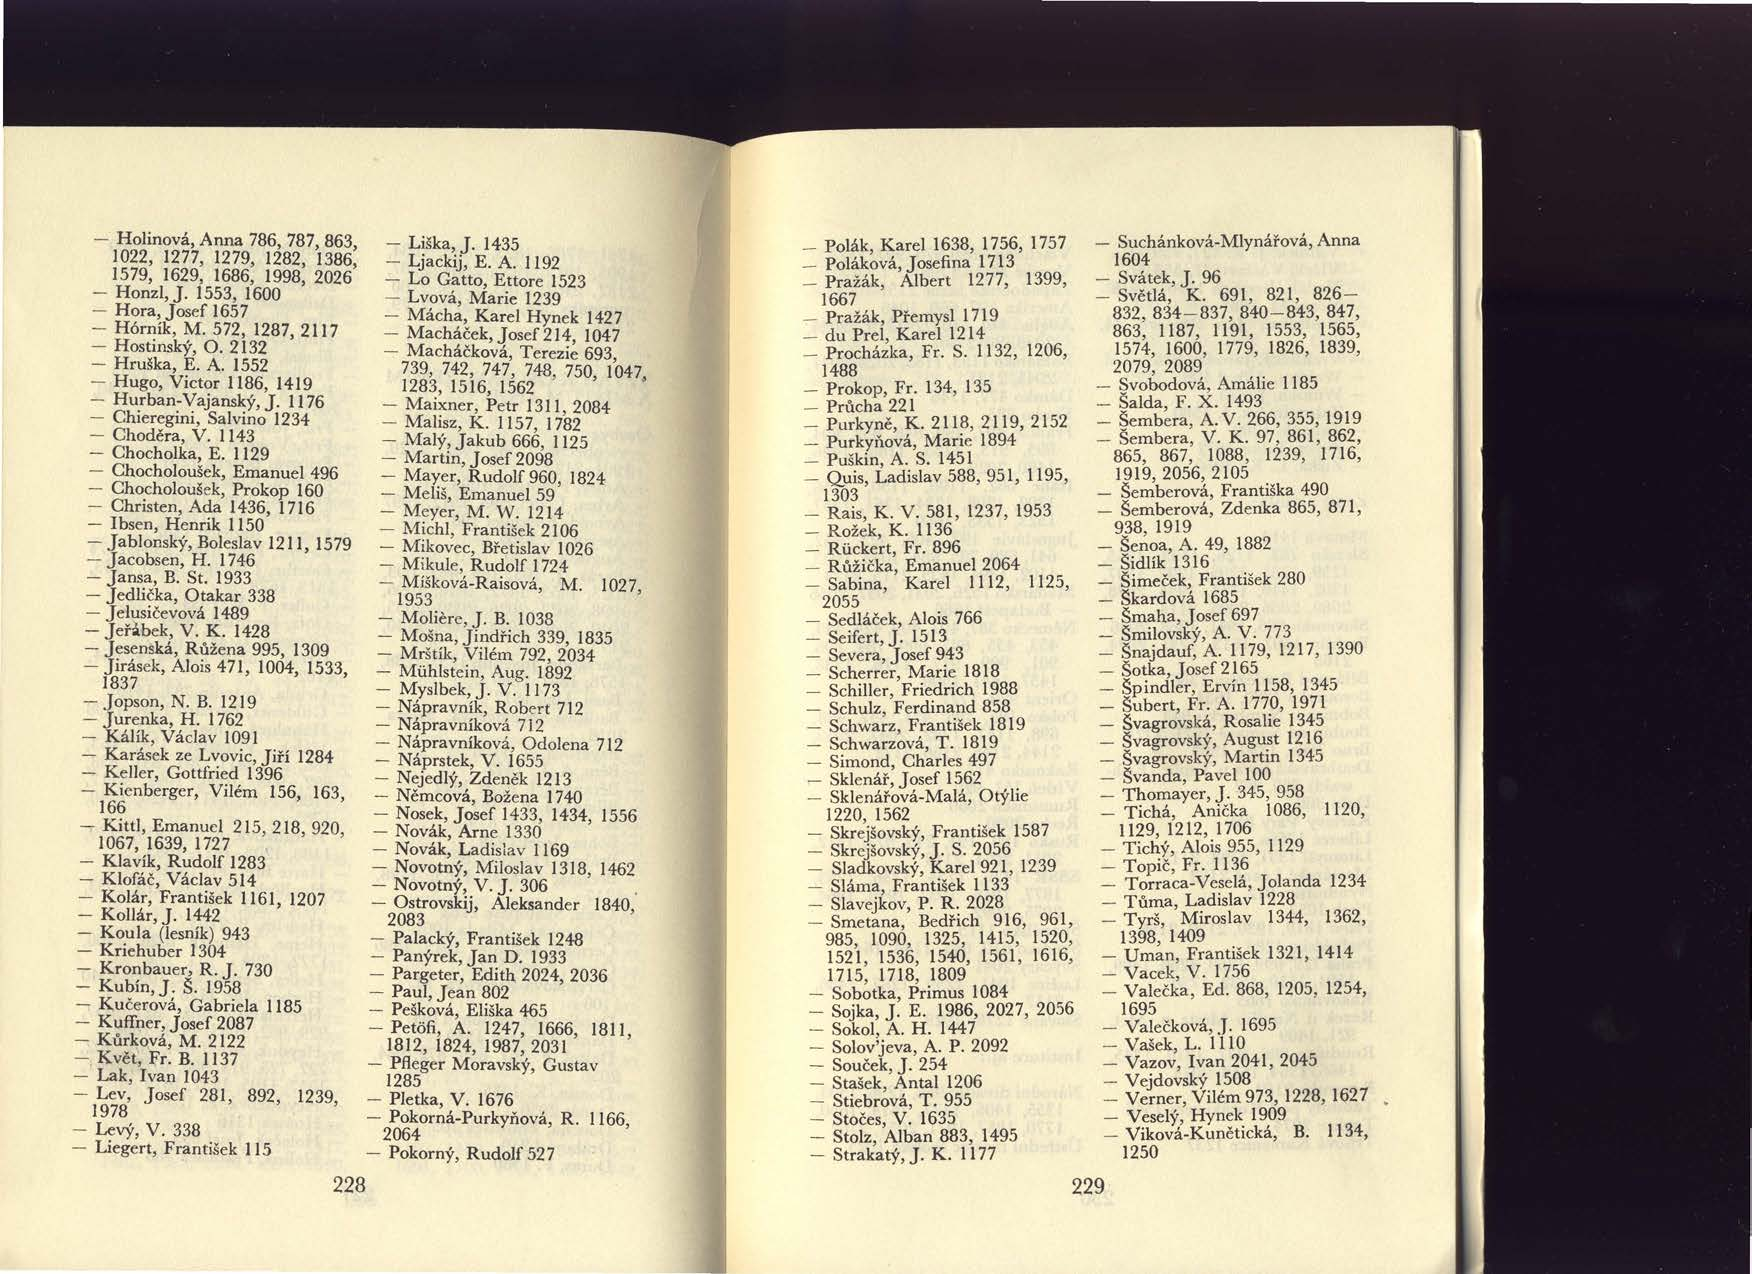 — Holinová, Anna 786, 787, 863,
1022, 1277, 1279, 1282, 1386,
1579, 1629, 1686, 1998, 2026
— Honzl, J. 1553, 1600
— Hora, Josef 1657
— Hórník, M. 572, 1287, 2117
— Hostinský, O. 2132
— Hruška, E. A. 1552
— Hugo, Victor 1186, 1419
— Hurban-Vajanský, J. 1176
— Chieregini, Salvino 1234
— Choděra, V. 1143
— Chocholka, E. 1129
— Chocholoušek, Emanuel 496
— Chocholoušek, Prokop 160
— Christen, Ada 1436, 1716
— Ibsen, Henrik 1150
— Jablonský, Boleslav 1211, 1579
— Jacobsen, H. 1746
— Jansa, B. St. 1933
— Jedlička, Otakar 338
— Jelusičevová 1489
— Jeřábek, V. K. 1428
— Jesenská, Růžena 995, 1309
— Jirásek, Alois 471, 1004, 1533,
1837
— Jopson, N. B. 1219
— Jurenka, H. 1762
— Kálík, Václav 1091
— Karásek ze Lvovic, Jiří 1284
— Keller, Gottfried 1396
— Kienberger, Vilém 156, 163,
166
— Kittl, Emanuel 215, 218, 920,
1067, 1639, 1727
— Klavík, Rudolf 1283
— Klofáč, Václav 514
— Kolár, František 1161, 1207
— Kollár, J. 1442
— Koula (lesník) 943
— Kriehuber 1304
— Kronbauer, R. J. 730
— Kubín, J. Š. 1958
— Kučerová, Gabriela 1185
— Kuffner, Josef 2087
— Kůrková, M. 2122
— Květ, Fr. B. 1137
— Lak, Ivan 1043
— Lev, Josef 281, 892, 1239,
1978
— Levý, V. 338
— Liegert, František 115
— Liška, J. 1435
— Ljackij, E. A. 1192
— Lo Gatto, Ettore 1523
— Lvová, Marie 1239
— Mácha, Karel Hynek 1427
— Macháček, Josef 214, 1047
— Macháčková, Terezie 693,
739, 742, 747, 748, 750, 1047,
1283, 1516, 1562
— Maixner, Petr 1311, 2084
— Malisz, K. 1157, 1782
— Malý, Jakub 666, 1125
— Martin, Josef 2098
— Mayer, Rudolf 960, 1824
— Meliš, Emanuel 59
— Meyer, M. W. 1214
— Michl, František 2106
— Mikovec, Břetislav 1026
— Mikule, Rudolf 1724
— Míšková-Raisová, M. 1027,
1953
— Molière, J. B. 1038
— Mošna, Jindřich 339, 1835
— Mrštík, Vilém 792, 2034
— Mühlstein, Aug. 1892
— Myslbek, J. V. 1173
— Nápravník, Robert 712
— Nápravníková 712
— Nápravníková, Odolena 712
— Náprstek, V. 1655
— Nejedlý, Zdeněk 1213
— Němcová, Božena 1740
— Nosek, Josef 1433, 1434, 1556
— Novák, Arne 1330
— Novák, Ladislav 1169
— Novotný, Miloslav 1318, 1462
— Novotný, V. J. 306
— Ostrovskij, Aleksander 1840,
2083
— Palacký, František 1248
— Panýrek, Jan D. 1933
— Pargeter, Edith 2024, 2036
— Paul, Jean 802
— Pešková, Eliška 465
— Petöfi, A. 1247, 1666, 1811,
1812, 1824, 1987, 2031
— Pfleger Moravský, Gustav
1285
— Pletka, V. 1676
— Pokorná-Purkyňová, R. 1166,
2064
— Pokorný, Rudolf 527
228
— Polák, Karel 1638, 1756, 1757
— Poláková, Josefina 1713
— Pražák, Albert 1277, 1399,
1667
— Pražák, Přemysl 1719
— du Prel, Karel 1214
— Procházka, Fr. S. 1132, 1206,
1488
— Prokop, Fr. 134, 135
— Průcha 221
— Purkyně, K. 2118, 2119, 2152
— Purkyňová, Marie 1894
— Puškin, A. S. 1451
— Quis, Ladislav 588, 951, 1195,
1303
— Rais, K. V. 581, 1237, 1953
— Rožek, K. 1136
— Rückert, Fr. 896
— Růžička, Emanuel 2064
— Sabina, Karel 1112, 1125,
2055
— Sedláček, Alois 766
— Seifert, J. 1513
— Severa, Josef 943
— Scherrer, Marie 1818
— Schiller, Friedrich 1988
— Schulz, Ferdinand 858
— Schwarz, František 1819
— Schwarzová, T. 1819
— Simond, Charles 497
— Sklenář, Josef 1562
— Sklenářová-Malá, Otýlie
1220, 1562
— Skrejšovský, František 1587
— Skrejšovský, J. S. 2056
— Sladkovský, Karel 921, 1239
— Sláma, František 1133
— Slavejkov, P. R. 2028
— Smetana, Bedřich 916, 961,
985, 1090, 1325, 1415, 1520,
1521, 1536, 1540, 1561, 1616,
1715, 1718, 1809
— Sobotka, Primus 1084
— Sojka, J. E. 1986, 2027, 2056
— Sokol, A. H. 1447
— Solov'jeva, A. P. 2092
— Souček, J. 254
— Stašek, Antal 1206
— Stiebrová, T. 955
— Stočes, V. 1635
— Stolz, Alban 883, 1495
— Strakatý, J. K. 1177
— Suchánková-Mlynářová, Anna
1604
— Svátek, J. 96
— Světlá, K. 691, 821, 826—
832, 834—837, 840—843, 847,
863, 1187, 1191, 1553, 1565,
1574, 1600, 1779, 1826, 1839,
2079, 2089
— Svobodová, Amálie 1185
— Šalda, F. X. 1493
— Šembera, A. V. 266, 355, 1919
— Šembera, V. K. 97, 861, 862,
865, 867, 1088, 1239, 1716,
1919, 2056, 2105
— Šemberová, Františka 490
— Šemberová, Zdenka 865, 871,
938, 1919
— Šenoa, A. 49, 1882
— Šidlík 1316
— Šimeček, František 280
— Škardová 1685
— Šmaha, Josef 697
— Šmilovský, A. V. 773
— Šnajdauf, A. 1179, 1217, 1390
— Šotka, Josef 2165
— Špindler, Ervín 1158, 1345
— Šubert, Fr. A. 1770, 1971
— Švagrovská, Rosalie 1345
— Švagrovský, August 1216
— Švagrovský, Martin 1345
— Švanda, Pavel 100
— Thomayer, J. 345, 958
— Tichá, Anička 1086, 1120,
1129, 1212, 1706
— Tichý, Alois 955, 1129
— Topič, Fr. 1136
— Torraca-Veselá, Jolanda 1234
— Tůma, Ladislav 1228
— Tyrš, Miroslav 1344, 1362,
1398, 1409
— Uman, František 1321, 1414
— Vacek, V. 1756
— Valečka, Ed. 868, 1205, 1254,
1695
— Valečková, J. 1695
— Vašek, L. 1110
— Vazov, Ivan 2041, 2045
— Vejdovský 1508
— Verner, Vilém 973, 1228, 1627
— Veselý, Hynek 1909
— Viková-Kunětická, B. 1134,
1250
229